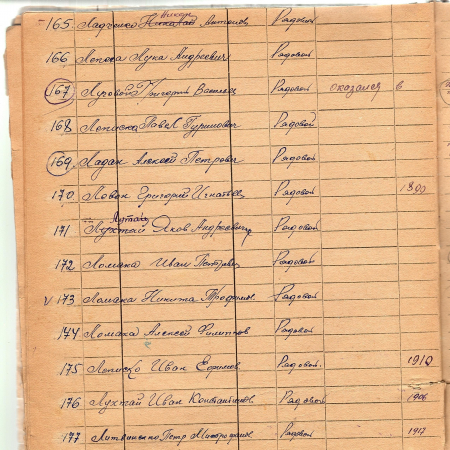 165. Ладченко Никон Антонов. Рядовой
166 Лепеха Лука Андреевич Рядовой
167 Луровой Григорий Василь Рядовой оказался в
168 Лописка Павел Гуринович Рядовой
169 Ладан Алексей Петрович Рядовой
170 Ловон Григорий Игнатьев Рядовой 1890
Лухтай
171 Яков Андреевич Рядовой
172 Ломака Иван Петрович Рядовой
v 173 Ломака Никита Трофимов. Рядовой
174 Ломака Алексей Филиппов Рядовой
175 Лописко Иван Ефимов. Рядовой. 1910
176 Лухтай Иван Константинов. Рядовой 1906
177 Литвиненко Петр Митрофанов Рядовой 1917